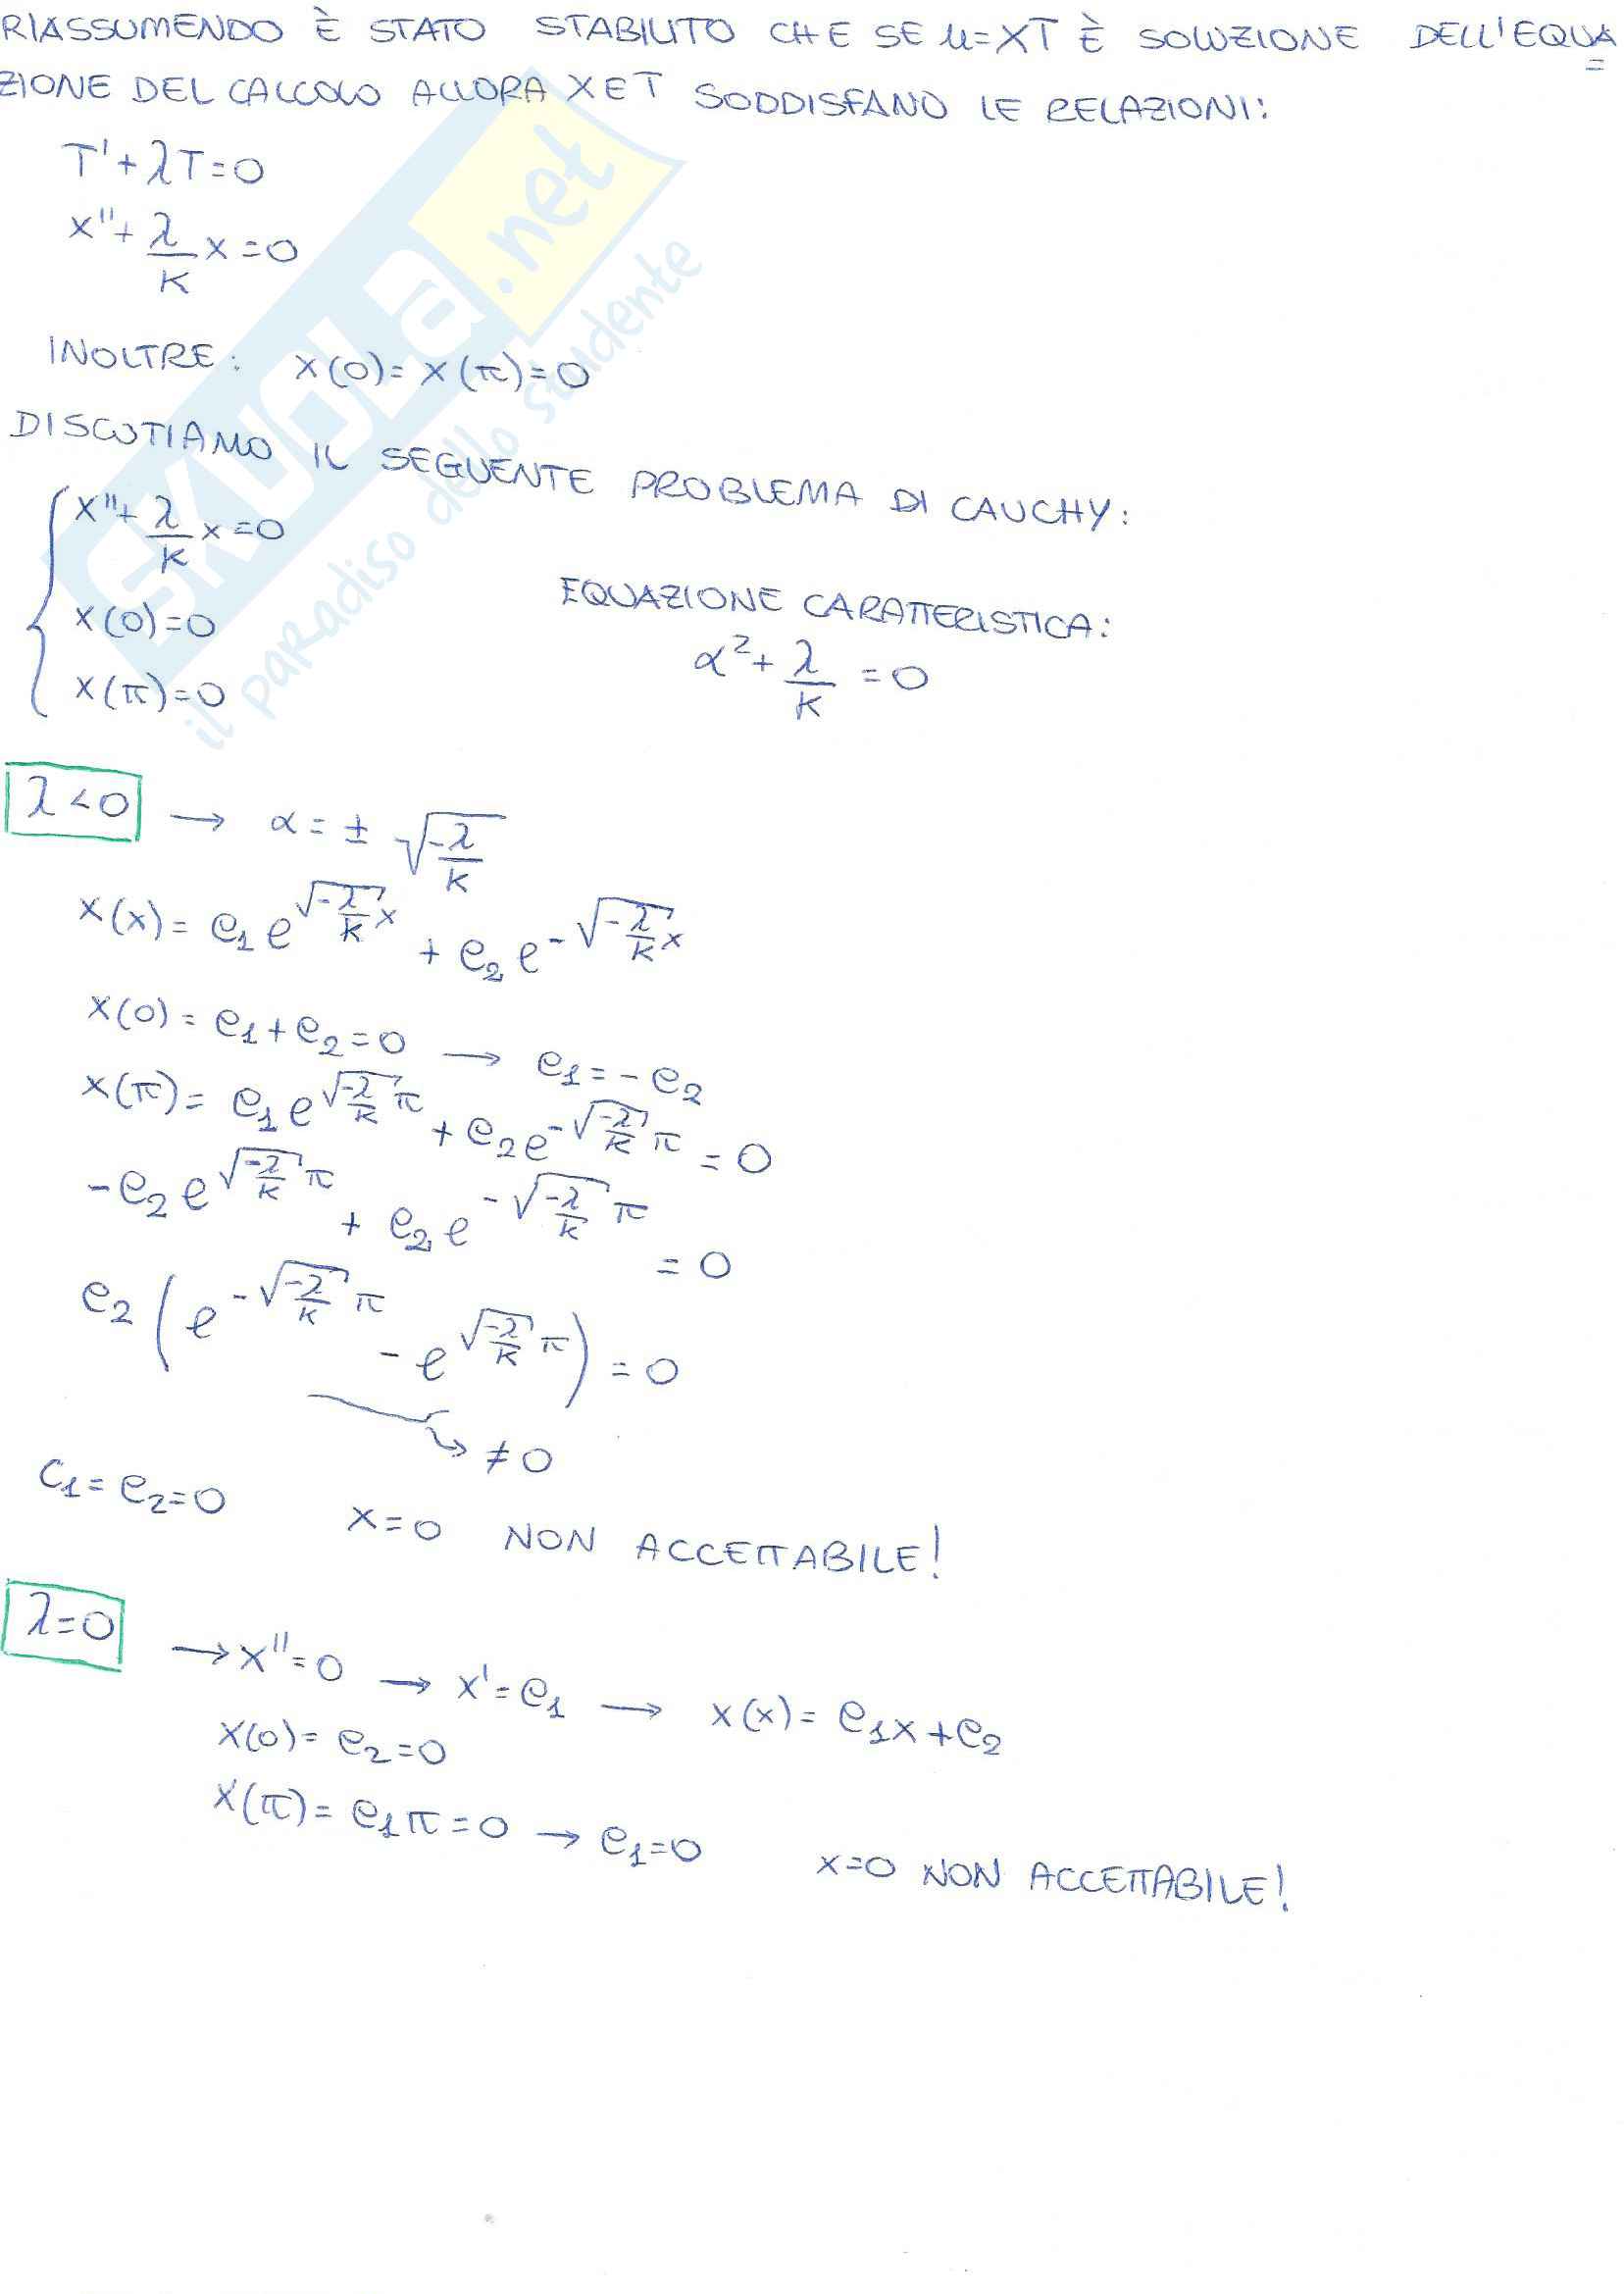 RIASSUMENDO È STATO STABILITO CHE SE u=XT È SOLUZIONE DELL'EQUA=
ZIONE DEL CALCOLO ALLORA X E T SODDISFANO LE RELAZIONI:
T' + λT = 0
X'' + λ/K X = 0
INOLTRE: X(0) = X(π) = 0
DISCUTIAMO IL SEGUENTE PROBLEMA DI CAUCHY:
{ X'' + λ/K X = 0
X(0) = 0
X(π) = 0
EQUAZIONE CARATTERISTICA:
α² + λ/K = 0
λ < 0 → α = ± √(-λ/K)
X(x) = c₁ e^(√(-λ/K) x) + c₂ e^(-√(-λ/K) x)
X(0) = c₁ + c₂ = 0 → c₁ = - c₂
X(π) = c₁ e^(√(-λ/K) π) + c₂ e^(-√(-λ/K) π) = 0
- c₂ e^(√(-λ/K) π) + c₂ e^(-√(-λ/K) π) = 0
c₂ ( e^(-√(-λ/K) π) - e^(√(-λ/K) π) ) = 0
↳ ≠ 0
c₁ = c₂ = 0 X = 0 NON ACCETTABILE!
λ = 0 → X'' = 0 → X' = c₁ → X(x) = c₁x + c₂
X(0) = c₂ = 0
X(π) = c₁π = 0 → c₁ = 0 X = 0 NON ACCETTABILE!
SKUOLA.net
il paradiso dello studente